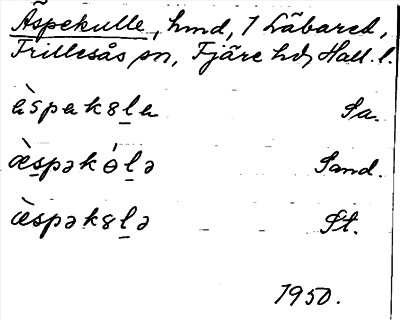 Äspekulle, hmd, 1 Läbared,
Frillesås sn, Fjäre hd, Hall. l.
àspak8l̲a Sa.
æ̀s̲pəkól̲ə Sand.
æ̀spək8l̲ə St.
1950.